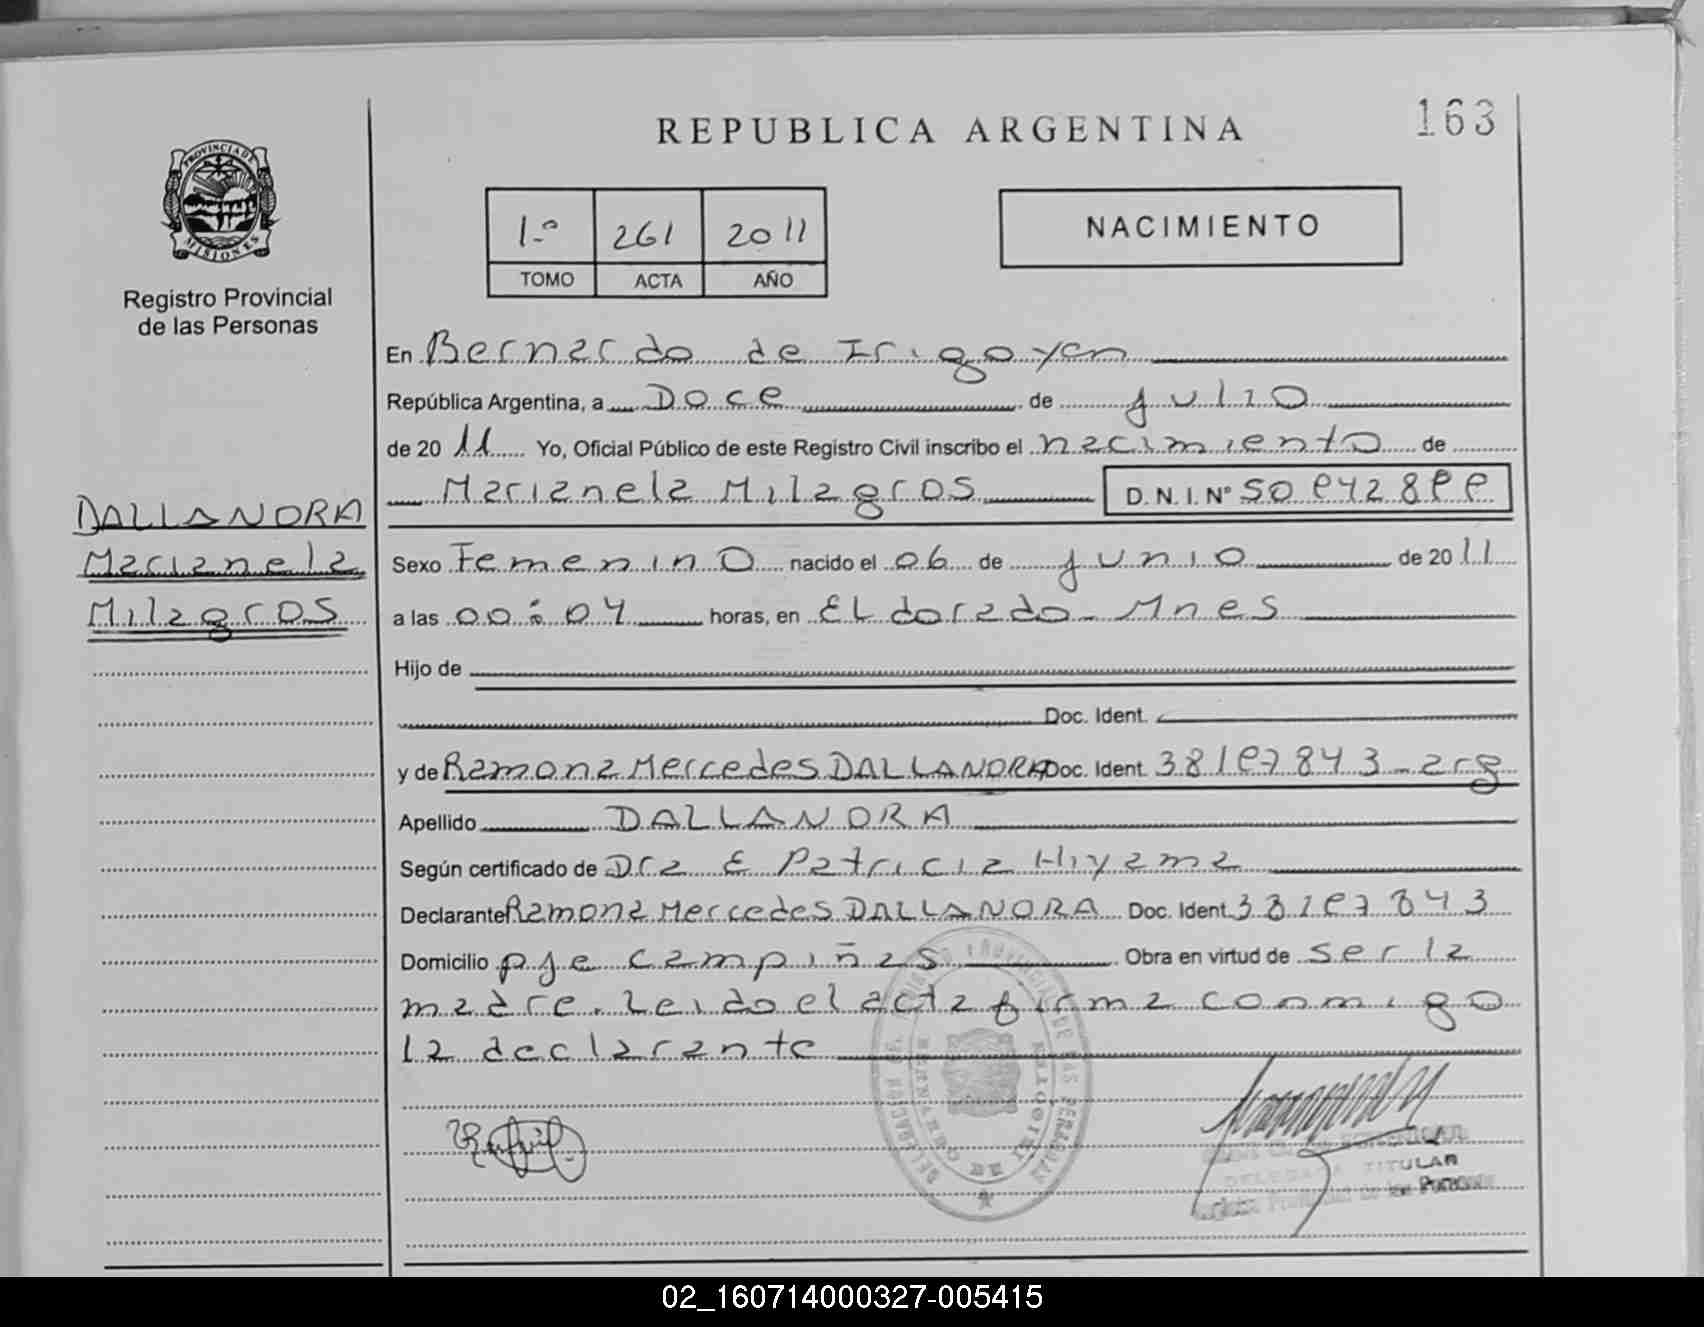 REPUBLICA ARGENTINA
163
PROVINCIA DE MISIONES
Registro Provincial
de las Personas
1.º 261 2011
TOMO ACTA AÑO
NACIMIENTO
En Bernardo de Irigoyen
República Argentina, a Doce de julio
de 2011 Yo, Oficial Público de este Registro Civil inscribo el nacimiento de
Marianela Milagros D.N.I. Nº
DALLANORA
Marianela
Milagros
Sexo Femenino nacido el 06 de junio de 2011
a las 00:04 horas, en Eldorado - Mnes
Hijo de
Doc. Ident.
y de Ramona Mercedes DALLANORA Doc. Ident. - arg
Apellido DALLANORA
Según certificado de Dra E Patricia Hiyama
Declarante Ramona Mercedes DALLANORA Doc. Ident.
Domicilio pje campiñas Obra en virtud de ser la
madre. Leido el acta firma conmigo
la declarante
TITULAR
de las Personas
02_160714000327-005415